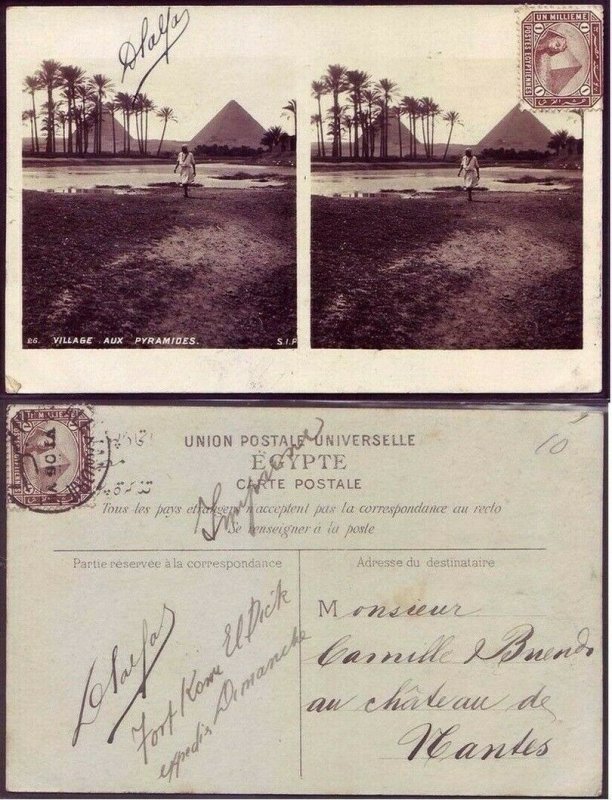 Dalfa
UN MILLIÈME
1 1
POSTES EGYPTIENNES
26. VILLAGE AUX PYRAMIDES.
S.I.P
UNION POSTALE UNIVERSELLE
ÉGYPTE
CARTE POSTALE
Tous les pays étrangers n'acceptent pas la correspondance au recto
Se renseigner à la poste
10
Partie réservée à la correspondance
Adresse du destinataire
Dalfa
Fort Kom El Dick
Dimanche
Monsieur
Camille
au château de
Nantes